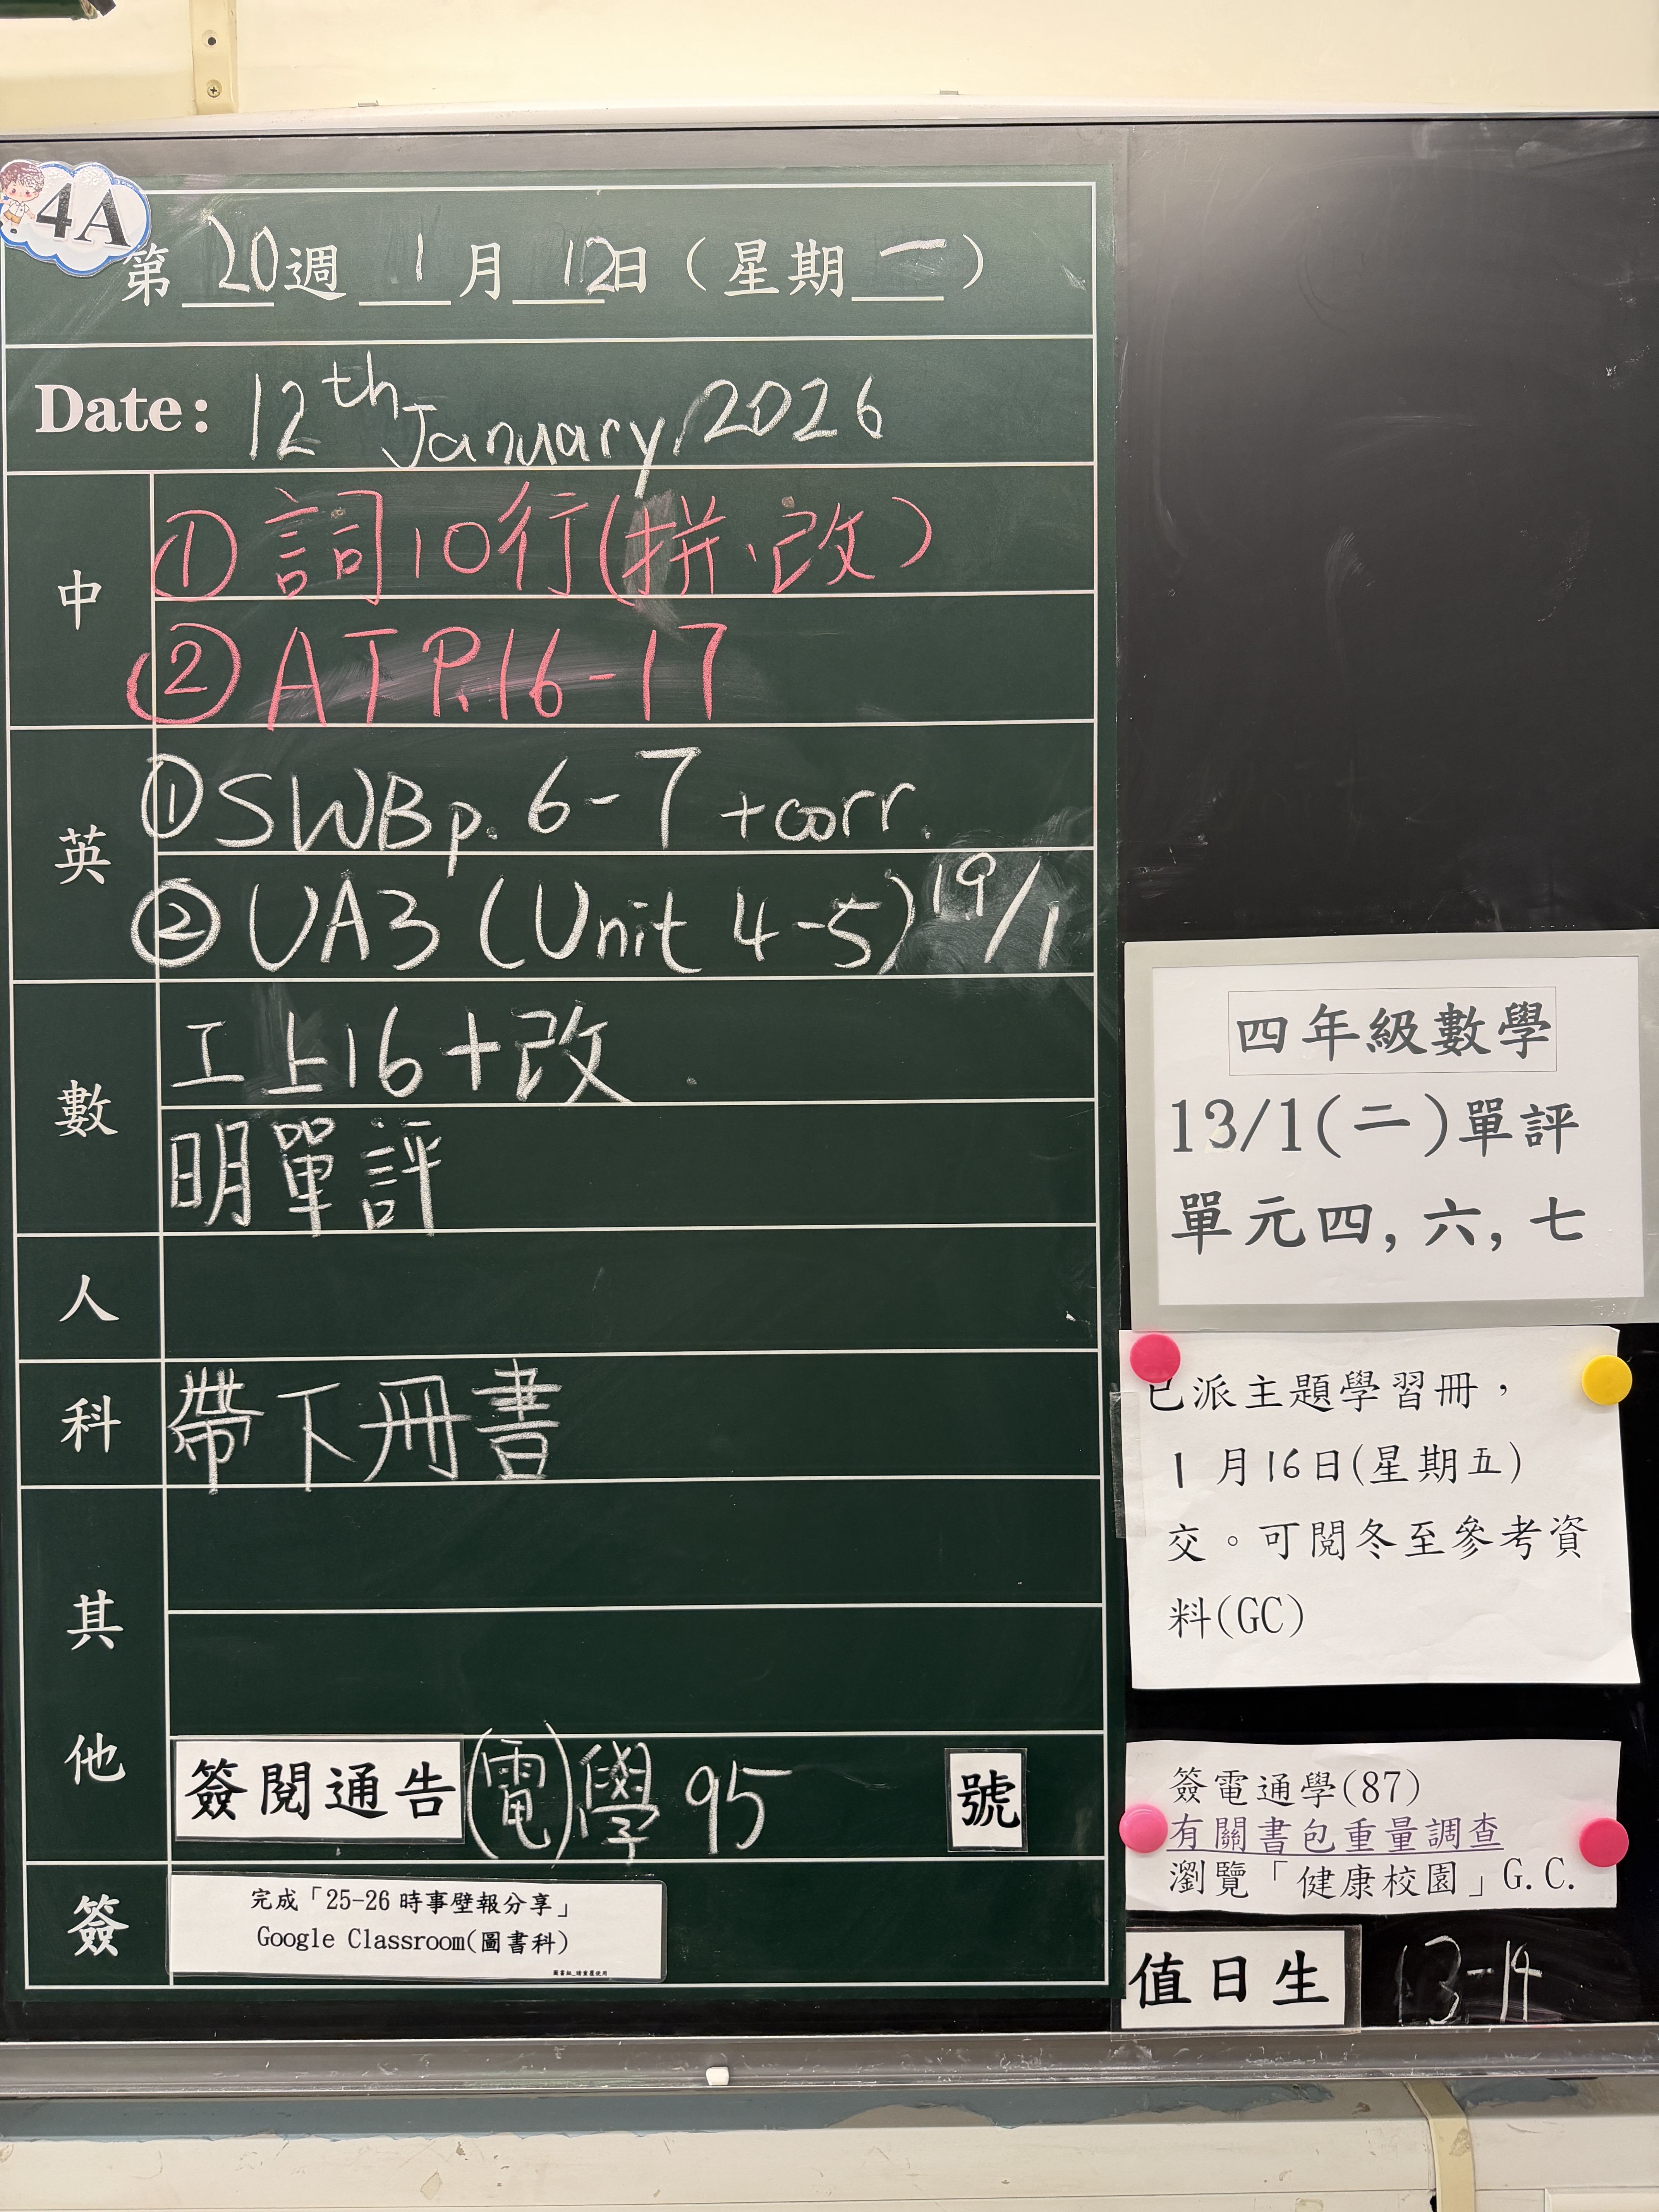 4A
第 20 週 1 月 12 日（星期 一 ）
Date: 12th January, 2026
中
① 詞10行(拼、改)
② AT P.16-17
英
① SWB p. 6-7 + corr.
② UA3 (Unit 4-5) 19/1
數
工上16+改.
明單評
人
科
帶下冊書
其他
簽閱通告(電)學 95 號
簽
完成「25-26 時事壁報分享」
Google Classroom(圖書科)
圖書組_請重覆使用
四年級數學
13/1(二)單評
單元四,六,七
已派主題學習冊，
1 月16日(星期五)
交。可閱冬至參考資
料(GC)
簽電通學(87)
有關書包重量調查
瀏覽「健康校園」G.C.
值日生 13-14